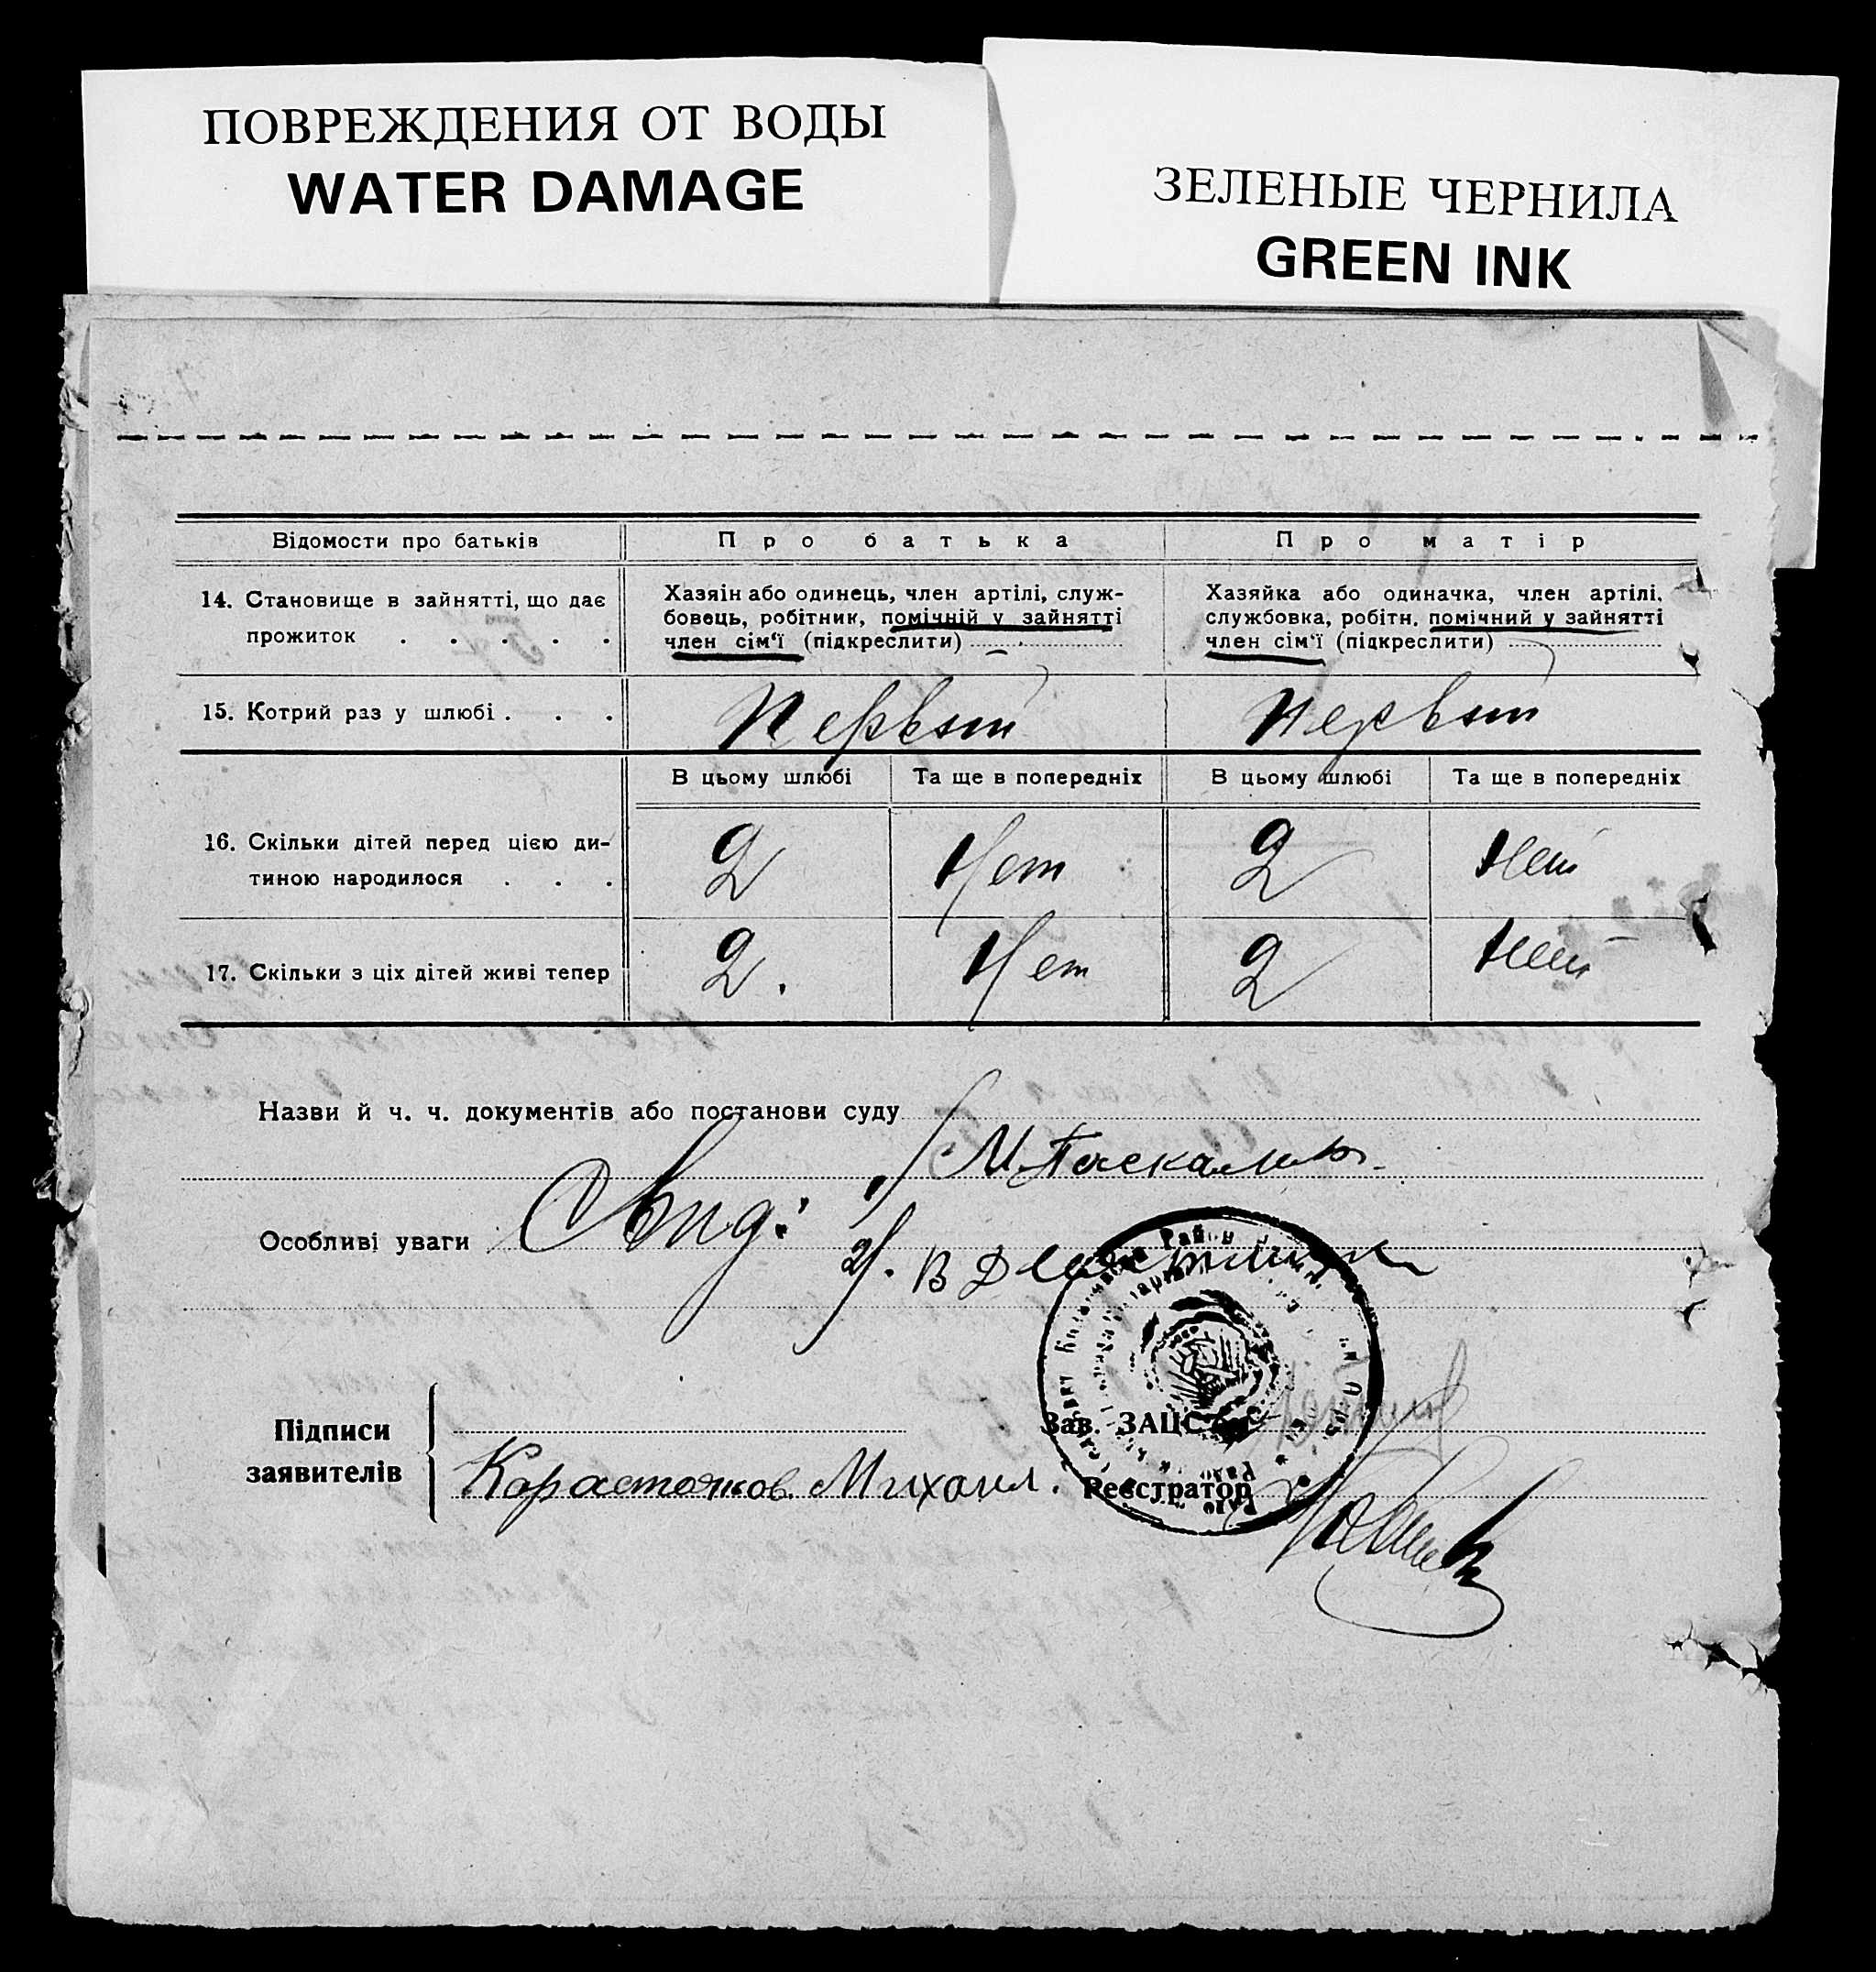 ПОВРЕЖДЕНИЯ ОТ ВОДЫ
WATER DAMAGE
ЗЕЛЕНЫЕ ЧЕРНИЛА
GREEN INK
Відомости про батьків
Про батька
Про матір
14. Становище в зайнятті, що дає
прожиток . . . . .
Хазяін або одинець, член артілі, служ-
бовець, робітник, помічній у зайнятті
член сім'ї (підкреслити)
Хазяйка або одиначка, член артілі,
службовка, робітн. помічний у зайнятті
член сім'ї (підкреслити)
15. Котрий раз у шлюбі . . .
Первый
Первый
В цьому шлюбі
Та ще в попередніх
В цьому шлюбі
Та ще в попередніх
16. Скільки дітей перед цією ди-
тиною народилося . . .
2
Нет
2
Нет
17. Скільки з ціх дітей живі тепер
2.
Нет
2
Нет
Назви й ч. ч. документів або постанови суду
Особливі уваги
Свид:
2/. В
Підписи
заявителів
Михаил.
Зав. ЗАЦС
Реєстратор